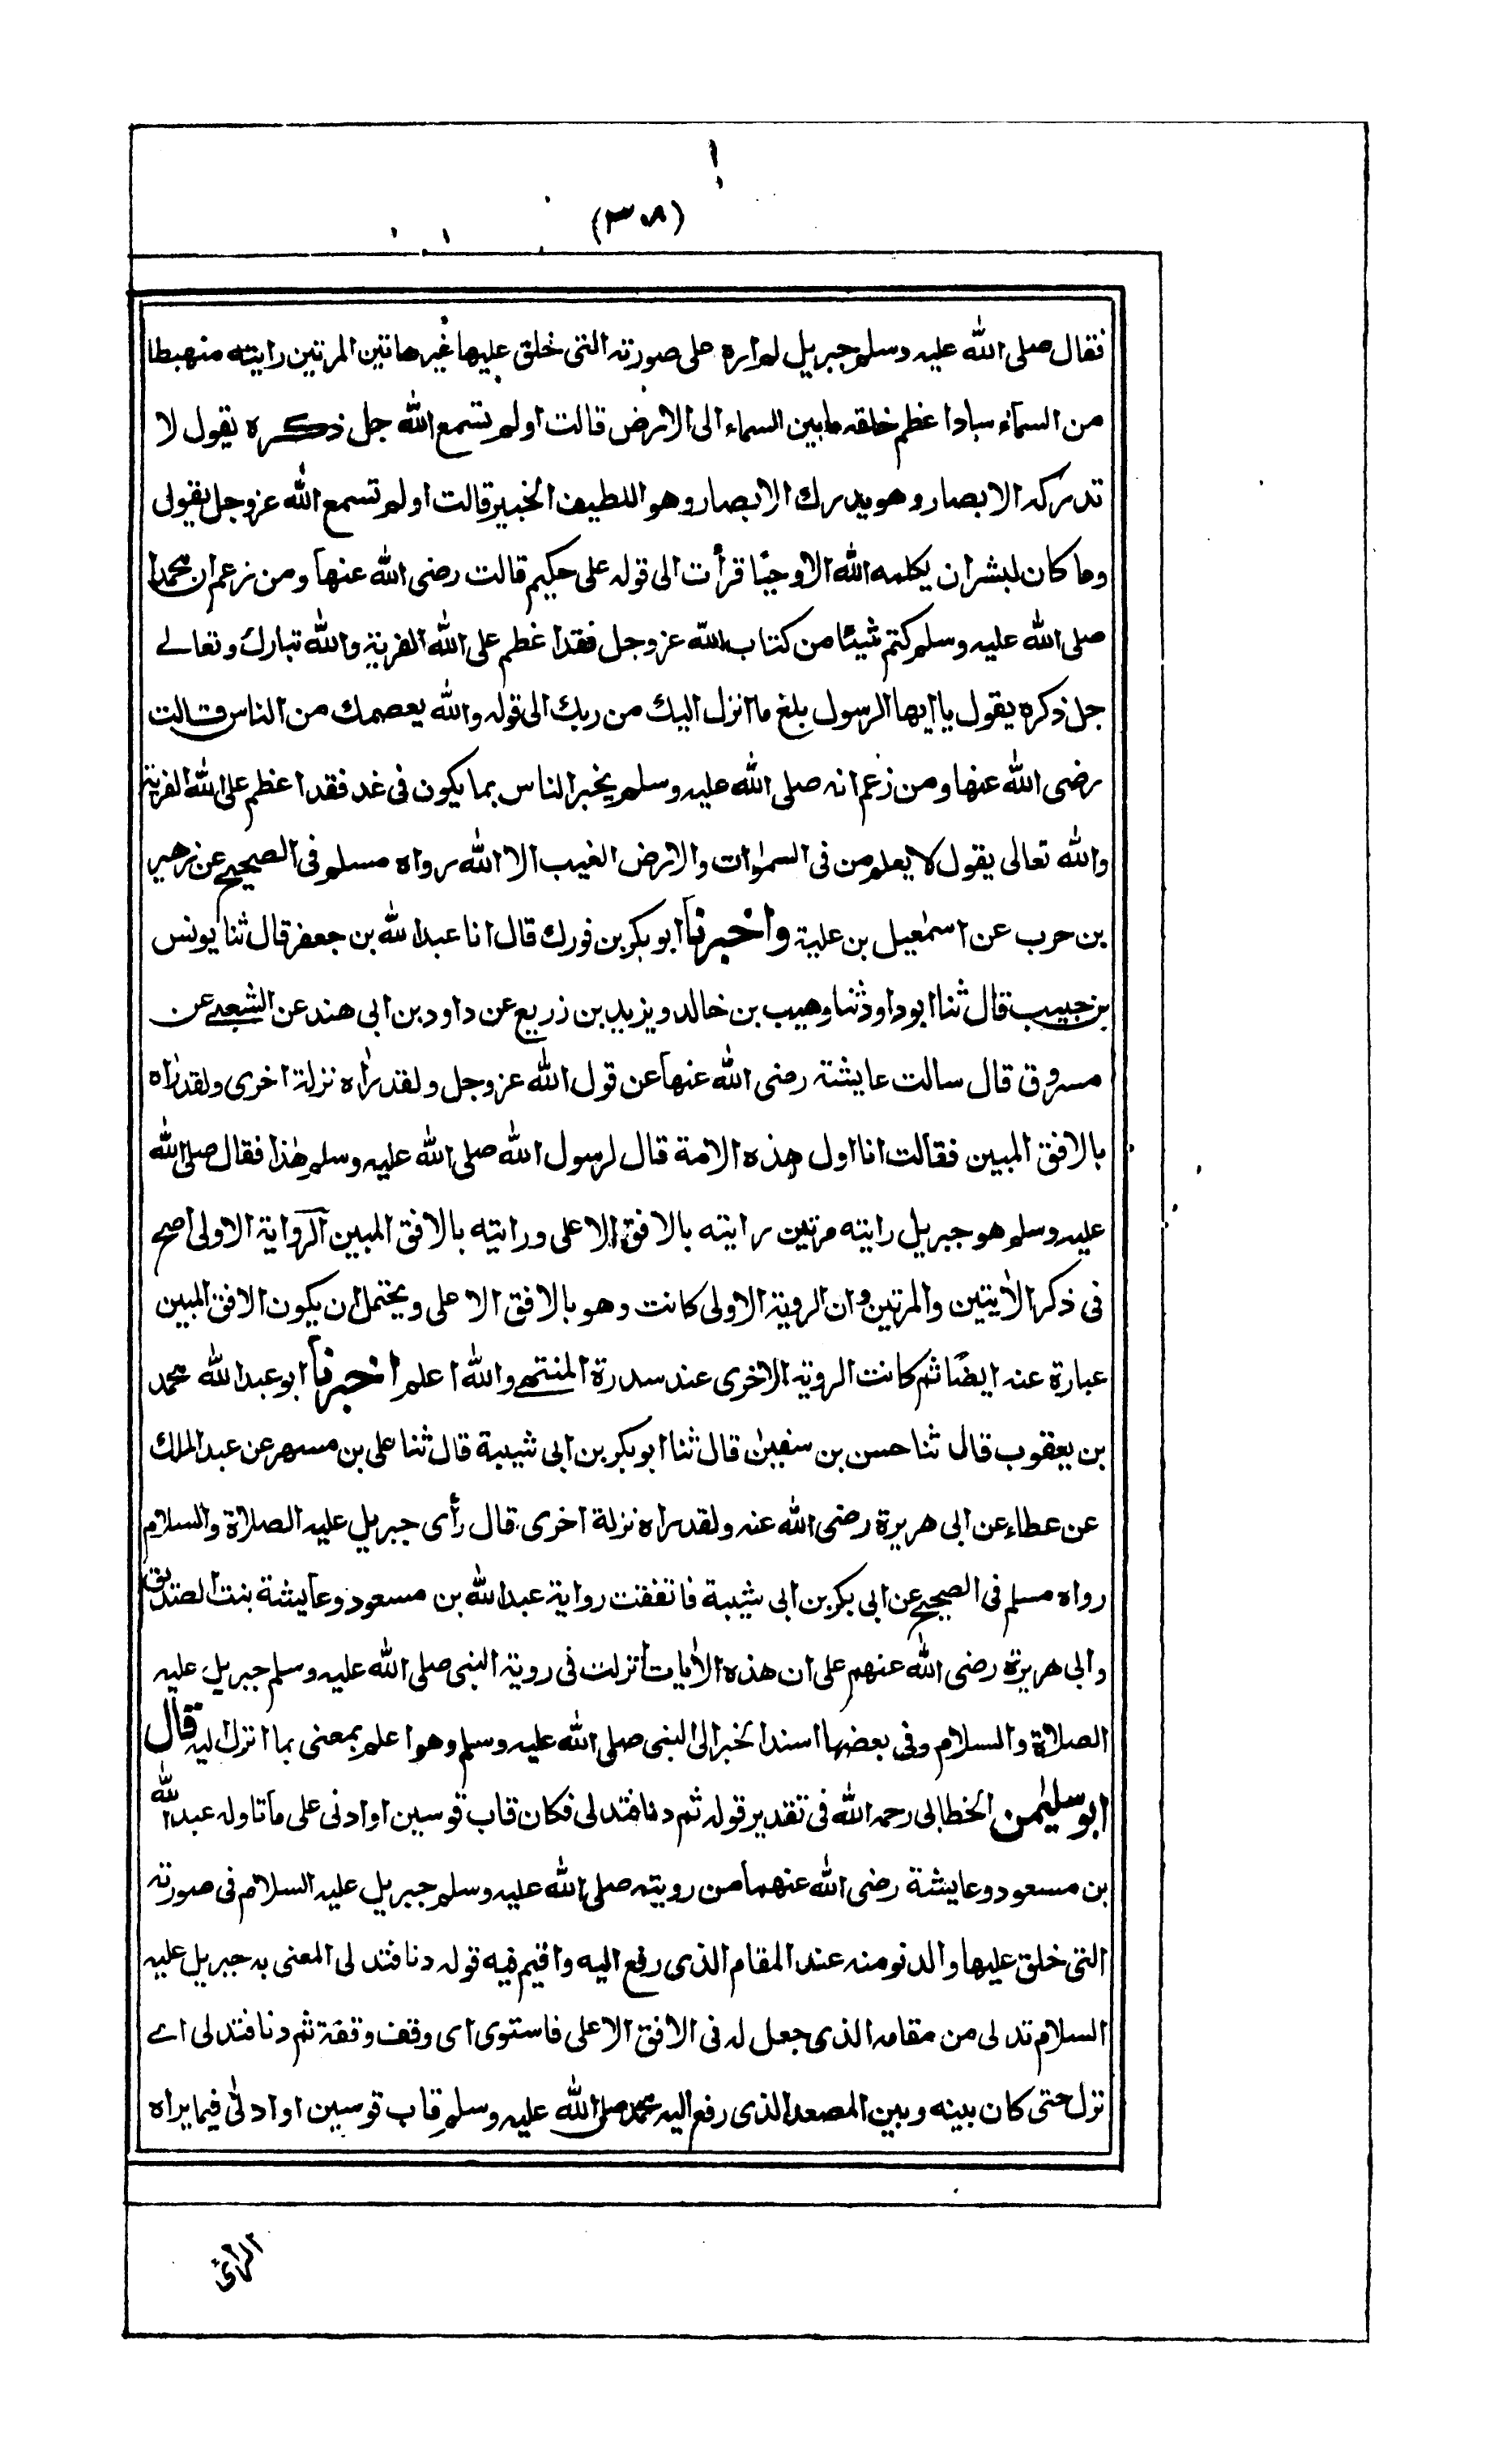 (٣٠٨)
فقال صلى الله عليه وسلم جبريل لم اره على صورته التى خلق عليها غير هاتين المرتين رايته منهبطا
من السمآء سادا عظم خلقه ما بين السماء الى الارض قالت اولم تسمع الله جل ذكره يقول لا
تدركه الابصار وهو يدرك الابصار وهو اللطيف الخبير قالت اولم تسمع الله عزوجل يقول
وما كان لبشر ان يكلمه الله الا وحيًا قرأت الى قوله على حكيم قالت رضى الله عنها ومن زعم ان محمدا
صلى الله عليه وسلم كتم شيئًا من كتاب الله عزوجل فقد اعظم على الله الفرية والله تبارك وتعالى
جل ذكره يقول يا ايها الرسول بلغ ما انزل اليك من ربك الى قوله والله يعصمك من الناس قالت
رضى الله عنها ومن زعم انه صلى الله عليه وسلم يخبر الناس بما يكون فى غد فقد اعظم على الله الفرية
والله تعالى يقول لا يعلم من فى السمٰوات والارض الغيب الا الله رواه مسلم فى الصحيح عن زهير
بن حرب عن اسمٰعيل بن علية واخبرنا ابو بكر بن فورك قال انا عبد الله بن جعفر قال ثنا يونس
بن حبيب قال ثنا ابوداود ثنا وهيب بن خالد ويزيد بن زريع عن داود بن ابى هند عن الشعبى عن
مسروق قال سالت عايشة رضى الله عنها عن قول الله عزوجل ولقد رٰاه نزلة اخرى ولقد رٰاه
بالافق المبين فقالت انا اول هذه الامة قال لرسول الله صلى الله عليه وسلم هٰذا فقال صلى الله
عليه وسلم هو جبريل رايته مرتين رايته بالافق الاعلى ورايته بالافق المبين الرواية الاولى اصح
فى ذكر الاٰيتين والمرتين وان الروية الاولى كانت وهو بالافق الاعلى ويحتمل ان يكون الافق المبين
عبارة عنه ايضًا ثم كانت الروية الاخرى عند سدرة المنتهى والله اعلم اخبرنا ابو عبد الله محمد
بن يعقوب قال ثنا حسن بن سفيٰن قال ثنا ابو بكر بن ابى شيبة قال ثنا على بن مسهر عن عبد الملك
عن عطاء عن ابى هريرة رضى الله عنه ولقد راٰه نزلة اخرى قال رأى جبريل عليه الصلاة والسلام
رواه مسلم فى الصحيح عن ابى بكر بن ابى شيبة فاتفقت رواية عبد الله بن مسعود وعايشة بنت الصديق
وابى هريرة رضى الله عنهم على ان هذه الاٰيات انزلت فى روية النبى صلى الله عليه وسلم جبريل عليه
الصلاة والسلام وفى بعضها اسند الخبر الى النبى صلى الله عليه وسلم وهو اعلم بمعنى بما انزل اليه قال
ابو سليمٰن الخطابى رحمه الله فى تقدير قوله ثم دنا فتدلى فكان قاب قوسين او ادنى على ما تاوله عبد الله
بن مسعود وعايشة رضى الله عنهما من رويته صلى الله عليه وسلم جبريل عليه السلام فى صورته
التى خلق عليها والدنو منه عند المقام الذى رفع اليه واقيم فيه قوله دنا فتدلى المعنى به جبريل عليه
السلام تدلى من مقامه الذى جعل له فى الافق الاعلى فاستوى اى وقف وقفة ثم دنا فتدلى اى
نزل حتى كان بينه وبين المصعد الذى رفع اليه محمد صلى الله عليه وسلم قاب قوسين او ادنىٰ فيما يراه
الرائى